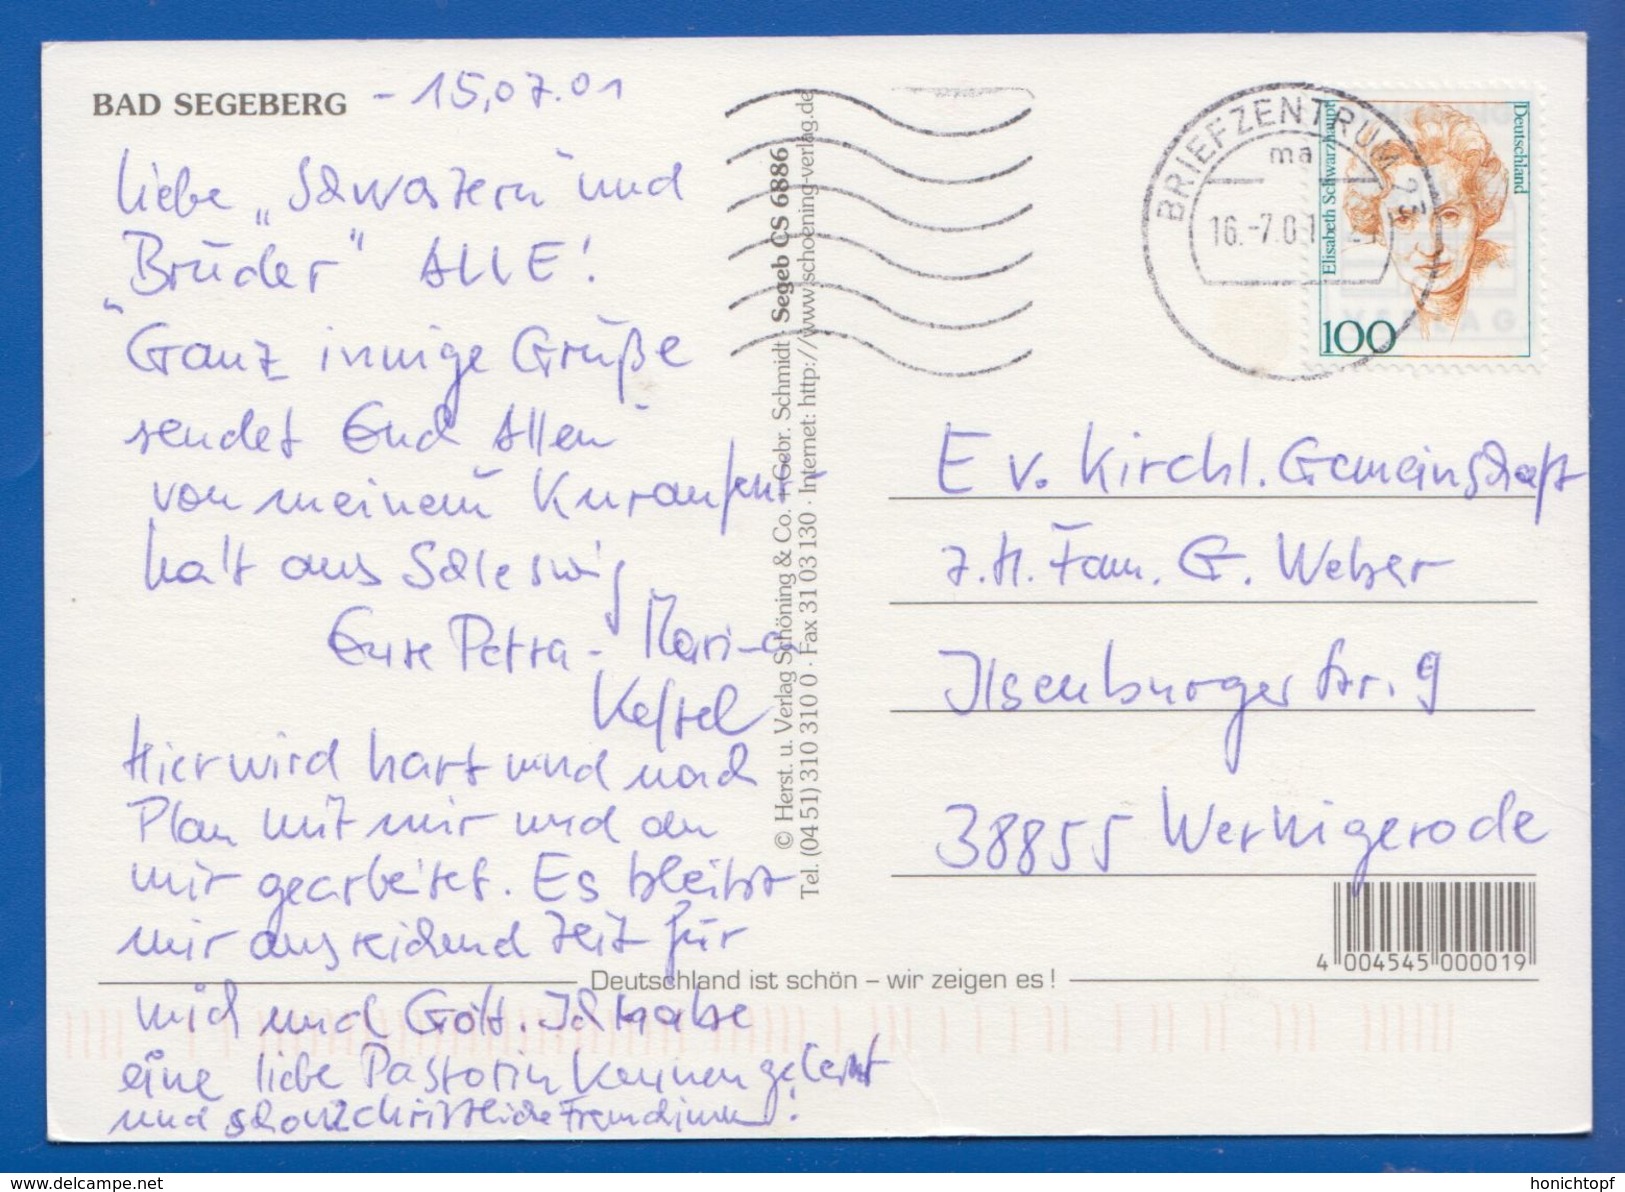 BAD SEGEBERG - 15.07.01
liebe „Schwestern und
„Brüder“ ALLE!
Ganz innige Grüße
sendet Euch Allen
von meinem Kuraufent-
halt aus Schleswig
Eure Petra-Mari-a
Keßel
Hier wird hart und nach
Plan mit mir und an
mir gearbeitet. Es bleibt
mir ausreichend Zeit für
mich und Gott. Ich habe
eine liebe Pastorin kennengelernt
und schon 2 christliche Freundinnen!
Deutschland ist schön – wir zeigen es!
© Herst. u. Verlag Schöning & Co. + Gebr. Schmidt · Segeb CS 6886
Tel. (04 51) 310 310 0 · Fax 31 03 130 · Internet: http://www.schoening-verlag.de
BRIEFZENTRUM 23
ma
16.-7.01
Elisabeth Schwarzhaupt
Deutschland
100
Ev. Kirchl. Gemeinschaft
z.H. Fam. G. Weber
Ilsenburger Str. 9
38855 Wernigerode
4 004545 000019
www.delcampe.net
honichtopf